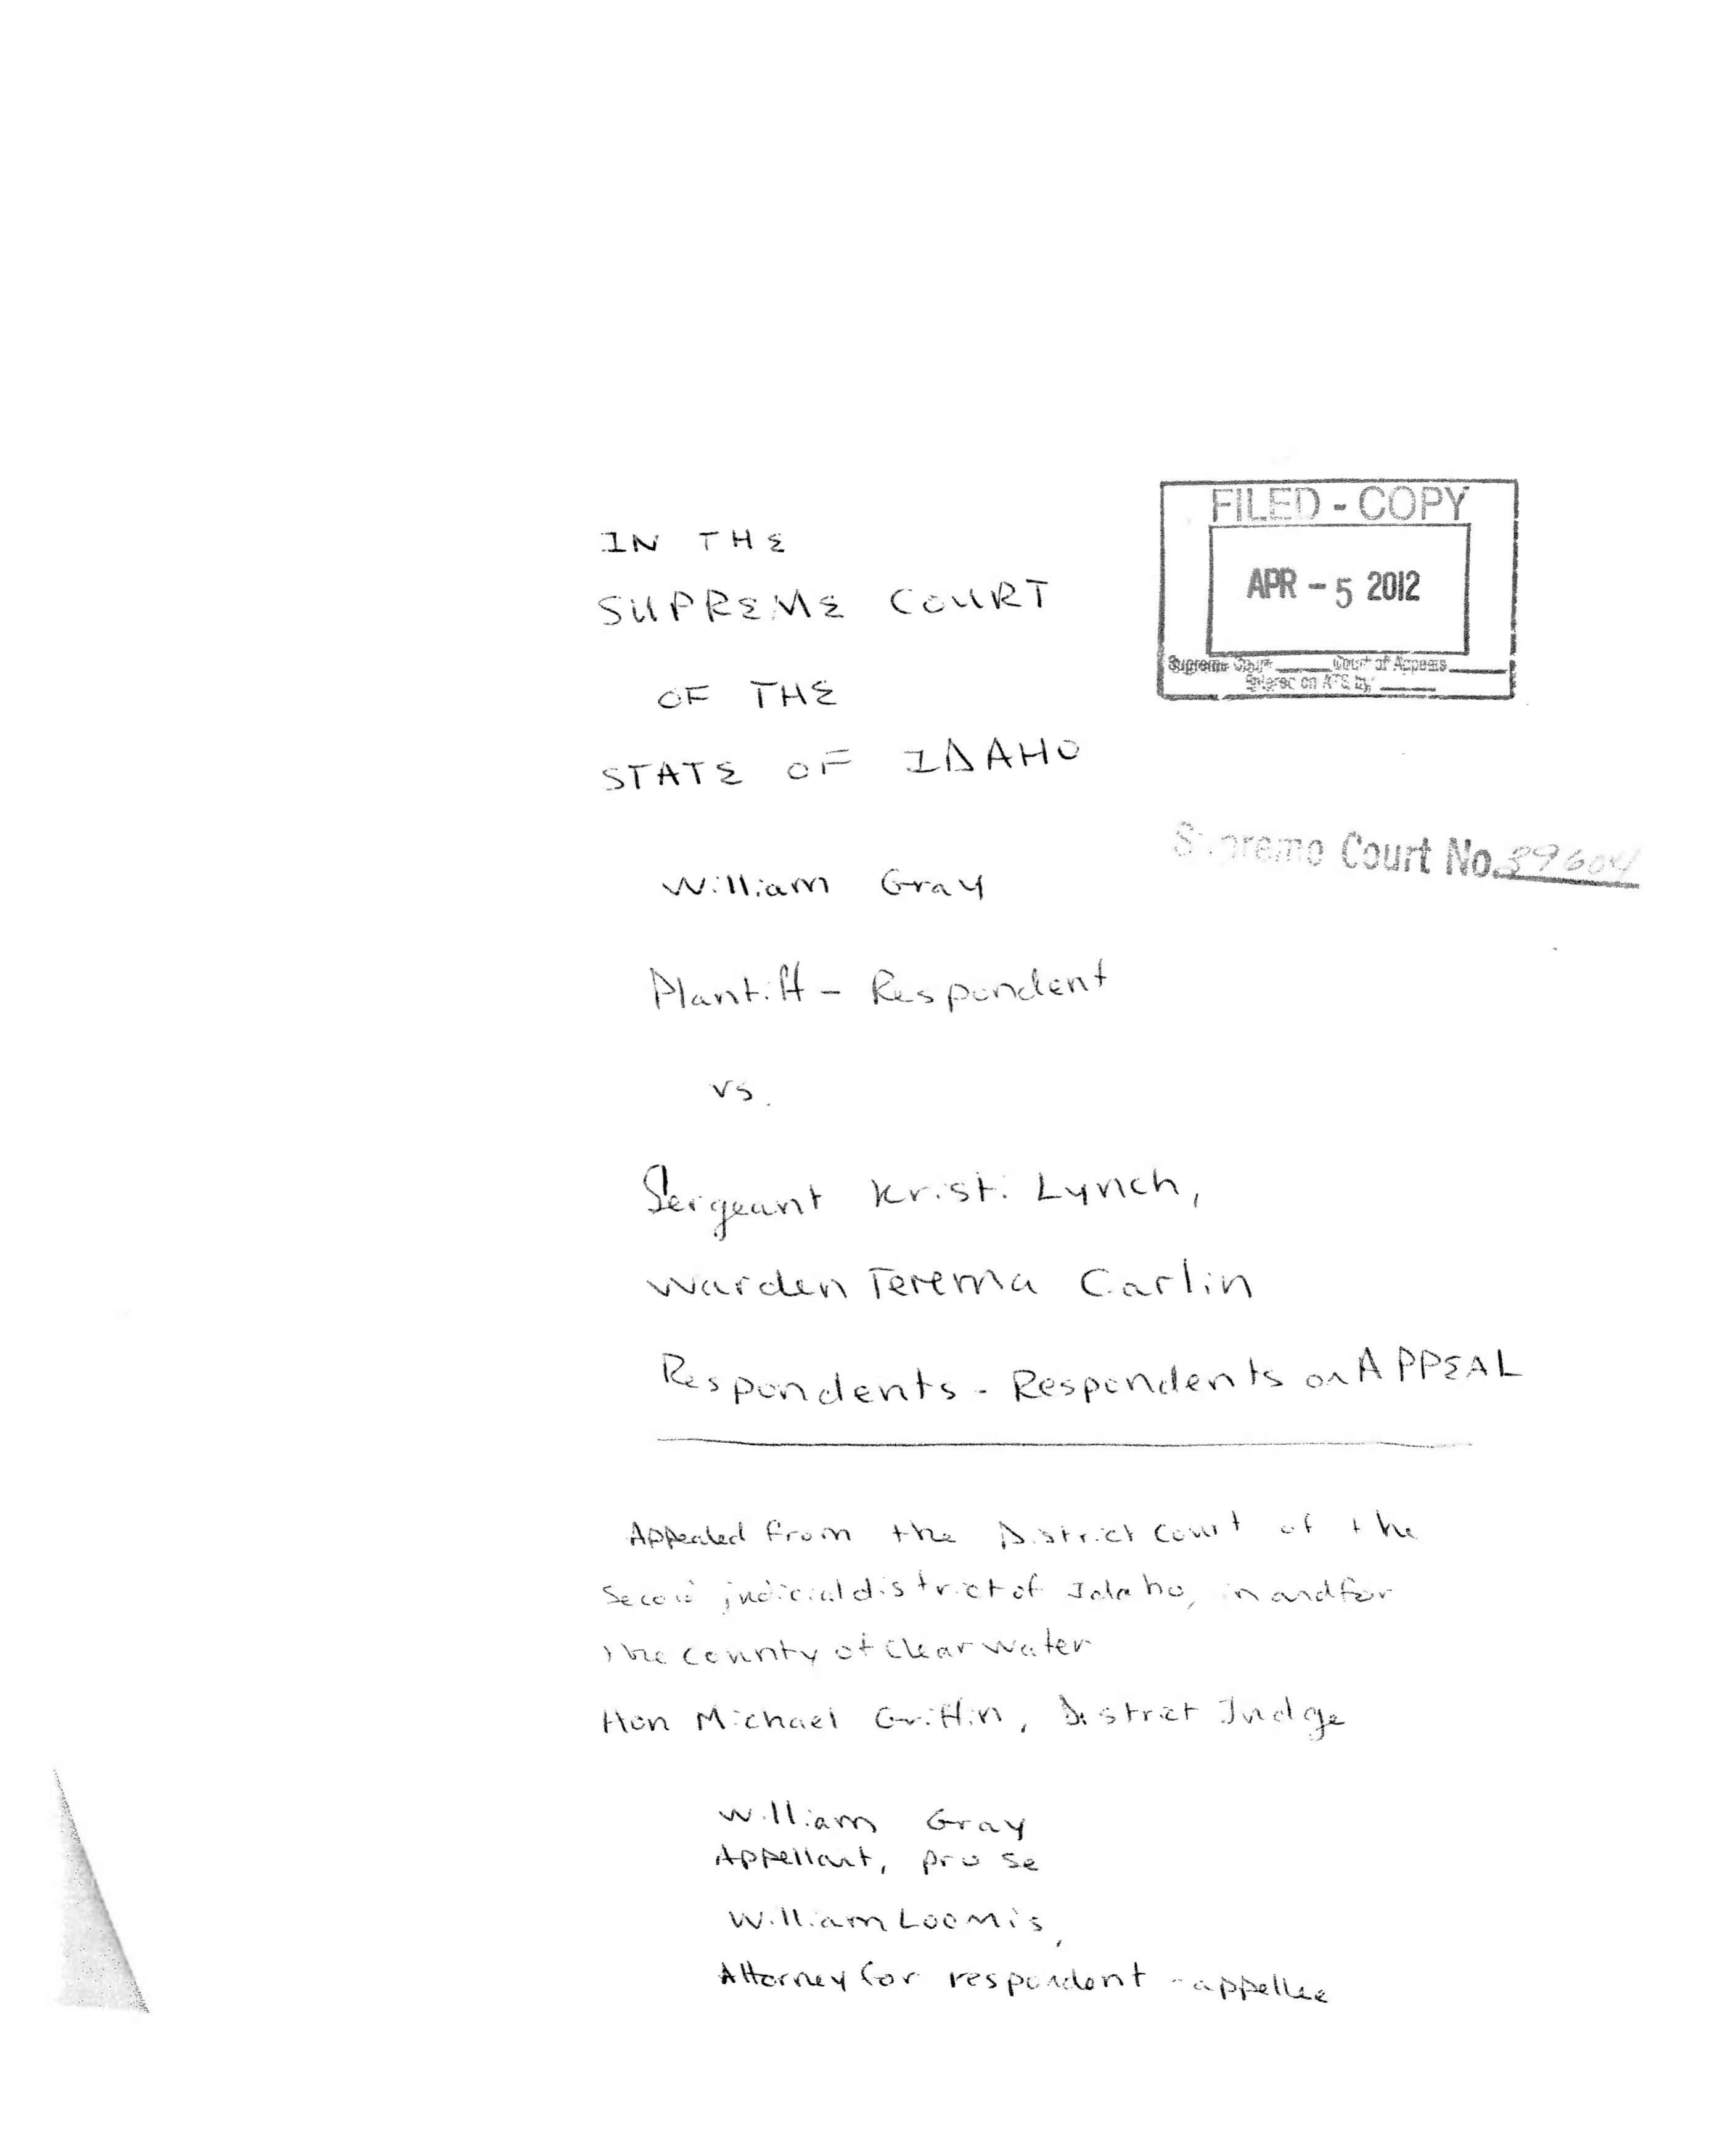 IN THE
SUPREME COURT
OF THE
STATE OF IDAHO
FILED - COPY
APR - 5 2012
Supreme Court Court of Appeals
Entered on ATS by:
Supreme Court No. 39604
William Gray
Plantiff - Respondent
vs.
Sergeant Kristi Lynch,
Warden Terema Carlin
Respondents - Respondents on APPEAL
Appealed from the District Court of the
Second judicial district of Idaho, in and for
the county of Clearwater
Hon Michael Griffin, District Judge
William Gray
Appellant, pro se
William Loomis,
Attorney for respondent - appellee